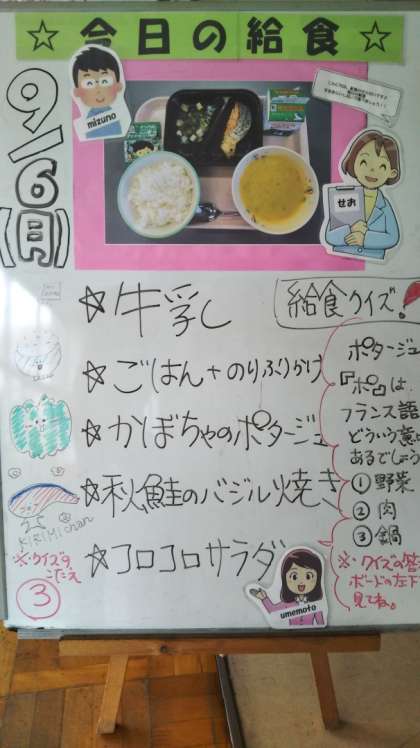 ☆今日の給食☆
9/6(月)
mizuno
せお
☆牛乳
☆ごはん+のりふりかけ
☆かぼちゃのポタージュ
☆秋鮭のバジル焼き
☆コロコロサラダ
給食クイズ!
ポタージュ
『ポ』は
フランス語
どういう意
あるでしょう
①野菜
②肉
③鍋
※クイズの答
ボードの左下
見てね。
KIRIMIchan
※クイズの
こたえ
③
umemoto